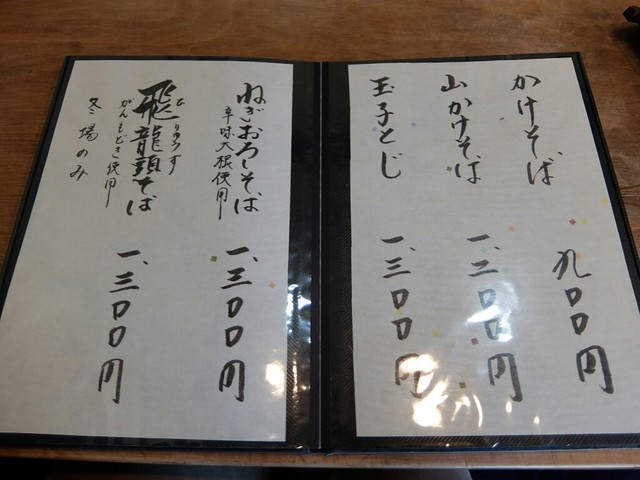 かけそば 九〇〇円
山かけそば 一、三〇〇円
玉子とじ 一、三〇〇円
ねぎおろしそば 一、三〇〇円
辛味大根使用
飛龍頭そば 一、三〇〇円
ひりゅうず
がんもどき使用
冬場のみ